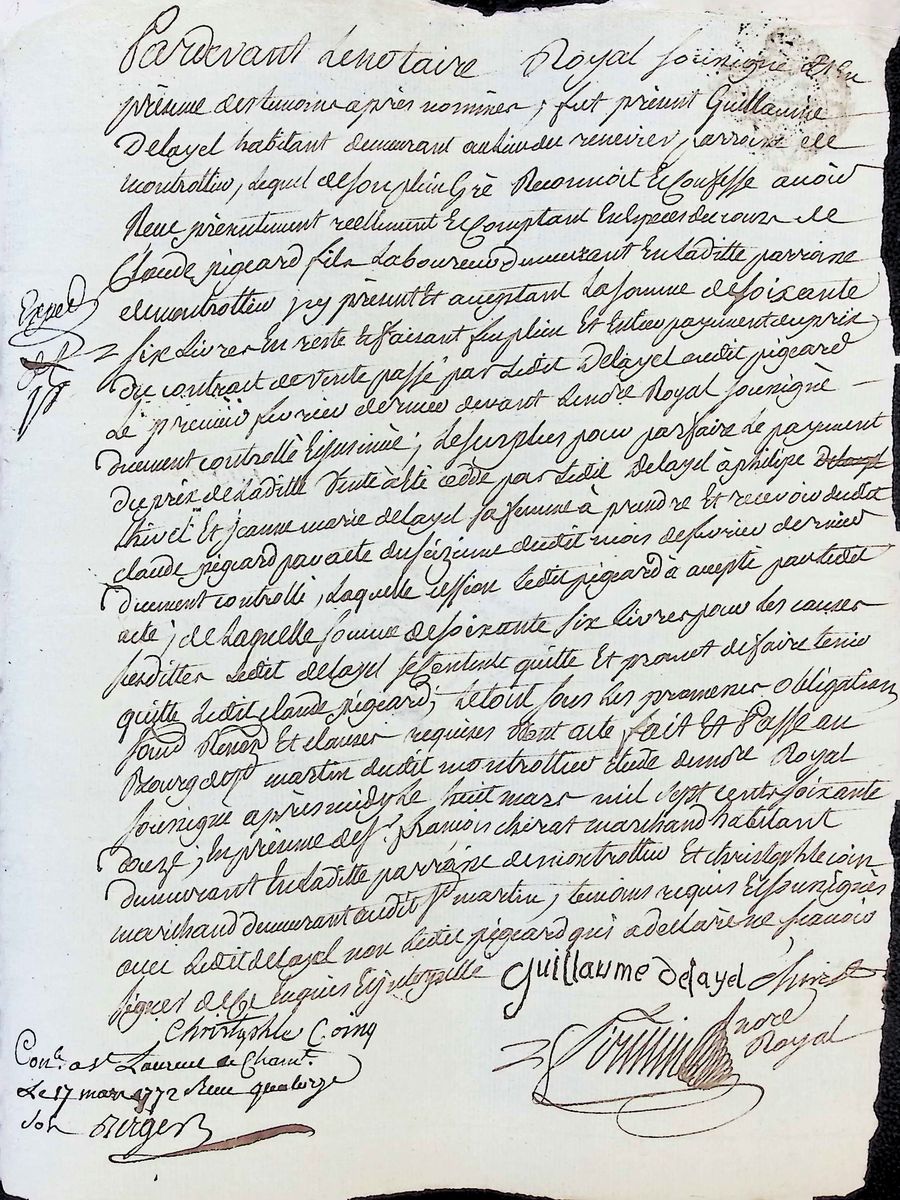 Pardevant Le notaire Royal soussigné et En
présence des temoins après nommés, fut présent Guillaume
Delayel habitant demeurant au lieu du parroisse de
montrottier, Lequel de son plein Gré Reconnoit et Confesse avoir
Reçu présentement reellement et Comptant En Especes du cours de
Claude pigeard fils Laboureur demeurant En Laditte parroisse
de montrottier y présent et aceptant La somme de soixante
Expéd
six Livres En reste et faisant fin plein Et Entier payement du prix
du contrait de vente passé par Ledit Delayel audit pigeard
Le premier fevrier dernier devant Le nore Royal soussigné
duement controllé Et insinué; Le surplus pour parfaire Le payement
du prix de Laditte vente a été cedde par Ledit Delayel à philipe
thivel Et jeanne marie delayel sa femme à prendre Et recevoir dudit
claude pigeard par acte du sézieme dudit mois de fevrier dernier
duement controllé, Laquelle cession Ledit pigeard à acepté par Ledit
acte; de Laquelle somme de soixante six Livres pour Les causes
susdittes Ledit delayel s'est Contenté quitte Et promet de faire tenir
quitte Ledit claude pigeard; Le tout sous Les promesses obligations
soumd Renond Et clauses requises dont acte fait Et Passé au
Bourg de st martin dudit montrottier Etude dudit nore Royal
soussigné après midy Le huit mars mil sept cents soixante
douze; En présence de sr françois chirat marchand habitant
demeurant En Laditte parroisse de montrottier Et christophle coin
marchand demeurant audit st martin, temoins requis Et soussignés
avec Ledit delayel non Ledit pigeard qui a declaré ne scavoir
signer de ce Enquis Et interpellé
Guillaume Delayel Chirat
Christophle Coing
nore
Royal
Conlé a st Laurent de Chamt
Le 17 mars 1772 Reçu quatorze
sols Berger